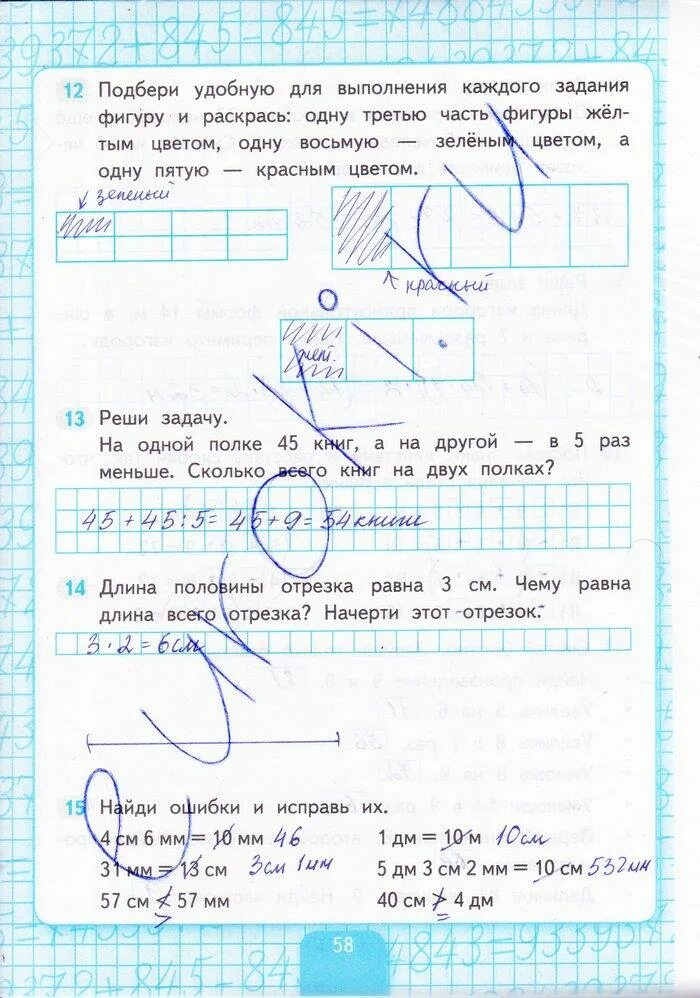 12 Подбери удобную для выполнения каждого задания
фигуру и раскрась: одну третью часть фигуры жёл-
тым цветом, одну восьмую — зелёным цветом, а
одну пятую — красным цветом.
зеленый
красный
жел.
13 Реши задачу.
На одной полке 45 книг, а на другой — в 5 раз
меньше. Сколько всего книг на двух полках?
45 + 45 : 5 = 45 + 9 = 54 книги
14 Длина половины отрезка равна 3 см. Чему равна
длина всего отрезка? Начерти этот отрезок.
3 · 2 = 6 см
15 Найди ошибки и исправь их.
4 см 6 мм = 10 мм 46 1 дм = 10 м 10 см
31 мм = 13 см 3 см 1 мм 5 дм 3 см 2 мм = 10 см 532 мм
57 см < 57 мм > 40 см > 4 дм =
58